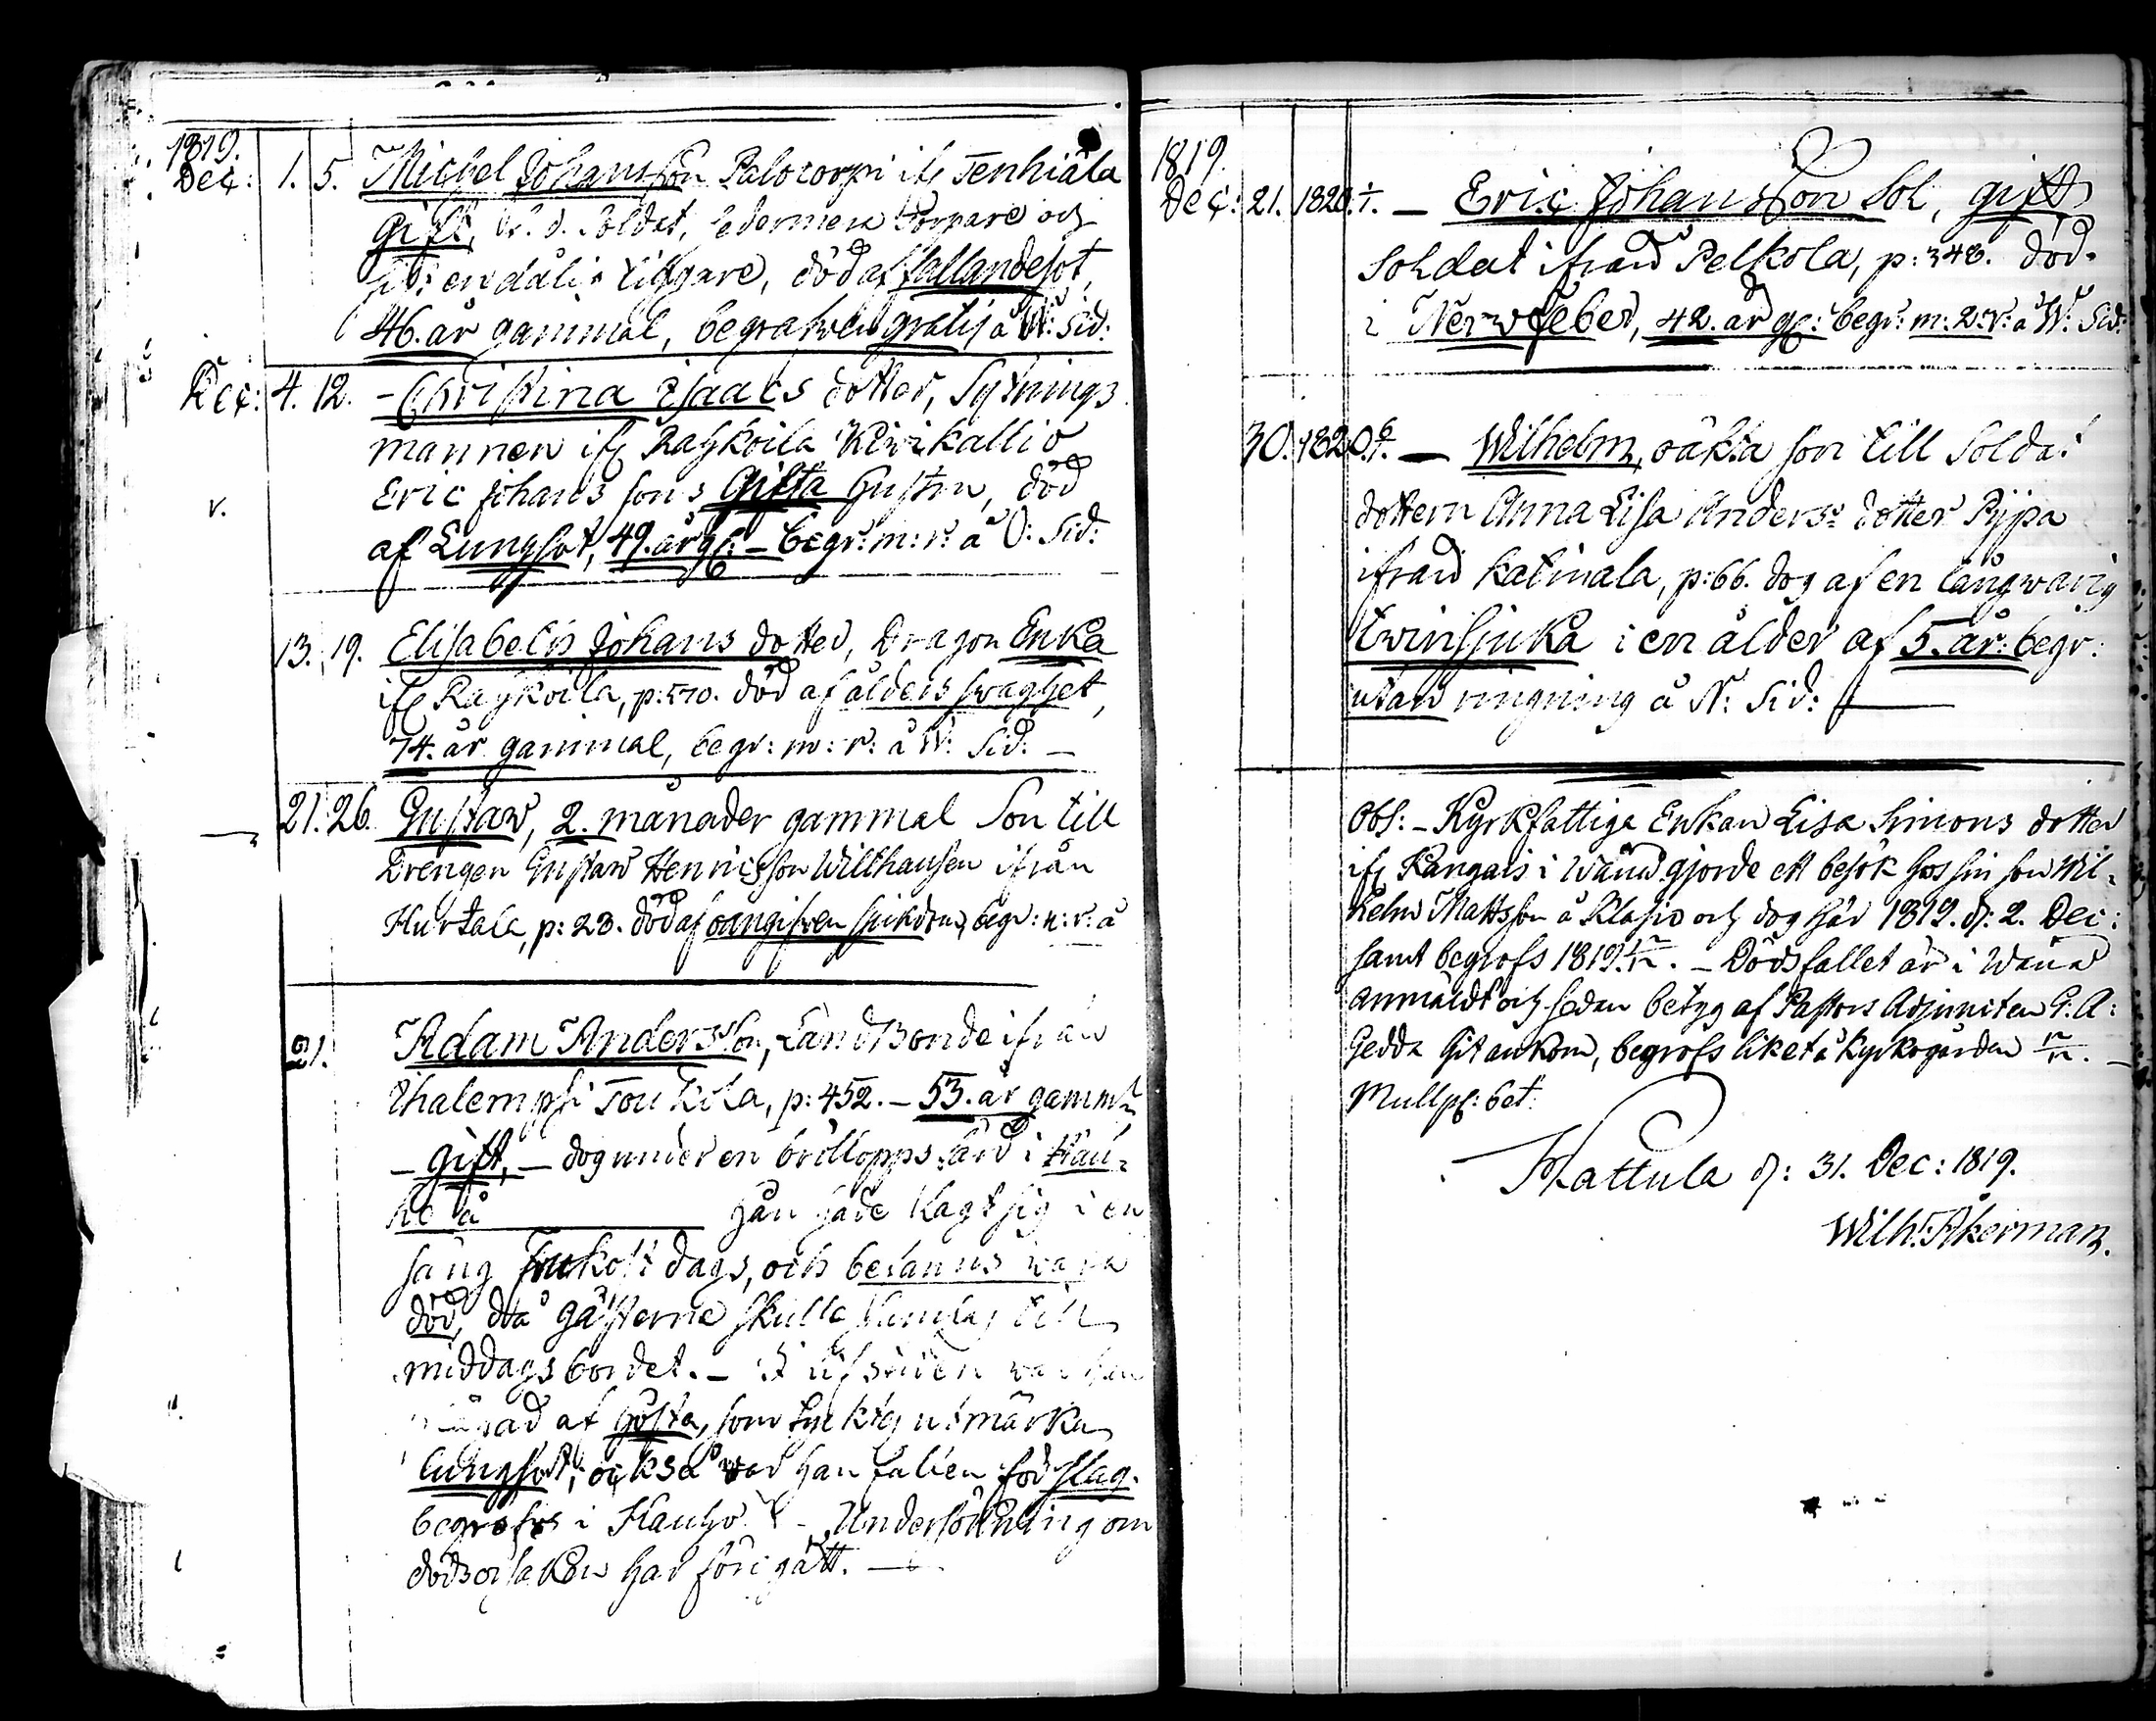 1819.
Dec: 1. 5. Michel Johansson Palocorpi ifr Tenhiäla
Gift, Soldat, sedermera Torpare och
en dålig Tiggare, död af fallandesot,
46. år gammal, begrafwen gratis å N: Sid:
Dec: 4. 12. - Christina Isaacs dotter, Sytnings
mannen ifr Rahkoila Kiwikallio
Eric Johans sons Gifta Hustru, död
v.
af Lungsot, 49. år gl: - begr: m: r: å O: Sid:
13. 19. Elisabeth Johans dotter, Dragon Enka
ifr Rahkoila, p: 570. död af ålders swaghet,
74. år gammal, begr: m: r: å W: Sid: -
21. 26. Gustaw, 2. månader gammal Son till
Drengen Gustaw Henricsson Willhausen ifrån
Hurtala, p: 23. död af oangifwen sjukdom, begr: u: r: å
21. Adam Andersson, Landbonde ifrån
Ihalempsi Toukila, p: 452. - 53. år gamml
- gift, - dog under en bröllopps färd i Hau-
ho å han hade lagt sig i en
säng frukost dags, och befanns wara
död, då gästerne skulle samlas till
middags bordet. - I lifstiden war han
af hosta, som tycktes utmärka
lungsot, också war han fallen för slag.
begrofs i Hauho - Undersökning om
dödsorsaken har föregått. -
1819.
Dec: 21. 1820. - Eric Johansson Sol, gift
Soldat ifrån Pelkola, p: 348. död
i Nerwfeber, 42. år gl: begr: m: 2: r: å W: Sid:
30. 1820. - Wilhelm, oäkta son till Soldat
dottern Anna Lisa Anders dotter Pijpa
ifrån Katinala, p: 66. dog af en långwarig
twinsjuka i en ålder af 5. år: begr:
utan ringning å N: Sid:
Obs: - Kyrkfattiga Enkan Lisa Simons dotter
ifr Kangais i Wånå gjorde ett besök hos sin son Wil-
helm Mattsson å och dog här 1819. d: 2. Dec:
samt begrofs 1819. - Dödsfallet är i Wånå
anmäldt och sedan betyg af Pastors Adjuncten G: A:
Gedda hit ankom, begrofs liket å Kyrkogården
Mullp: bet:
Hattula d: 31. Dec: 1819.
Wilh: Åkerman.